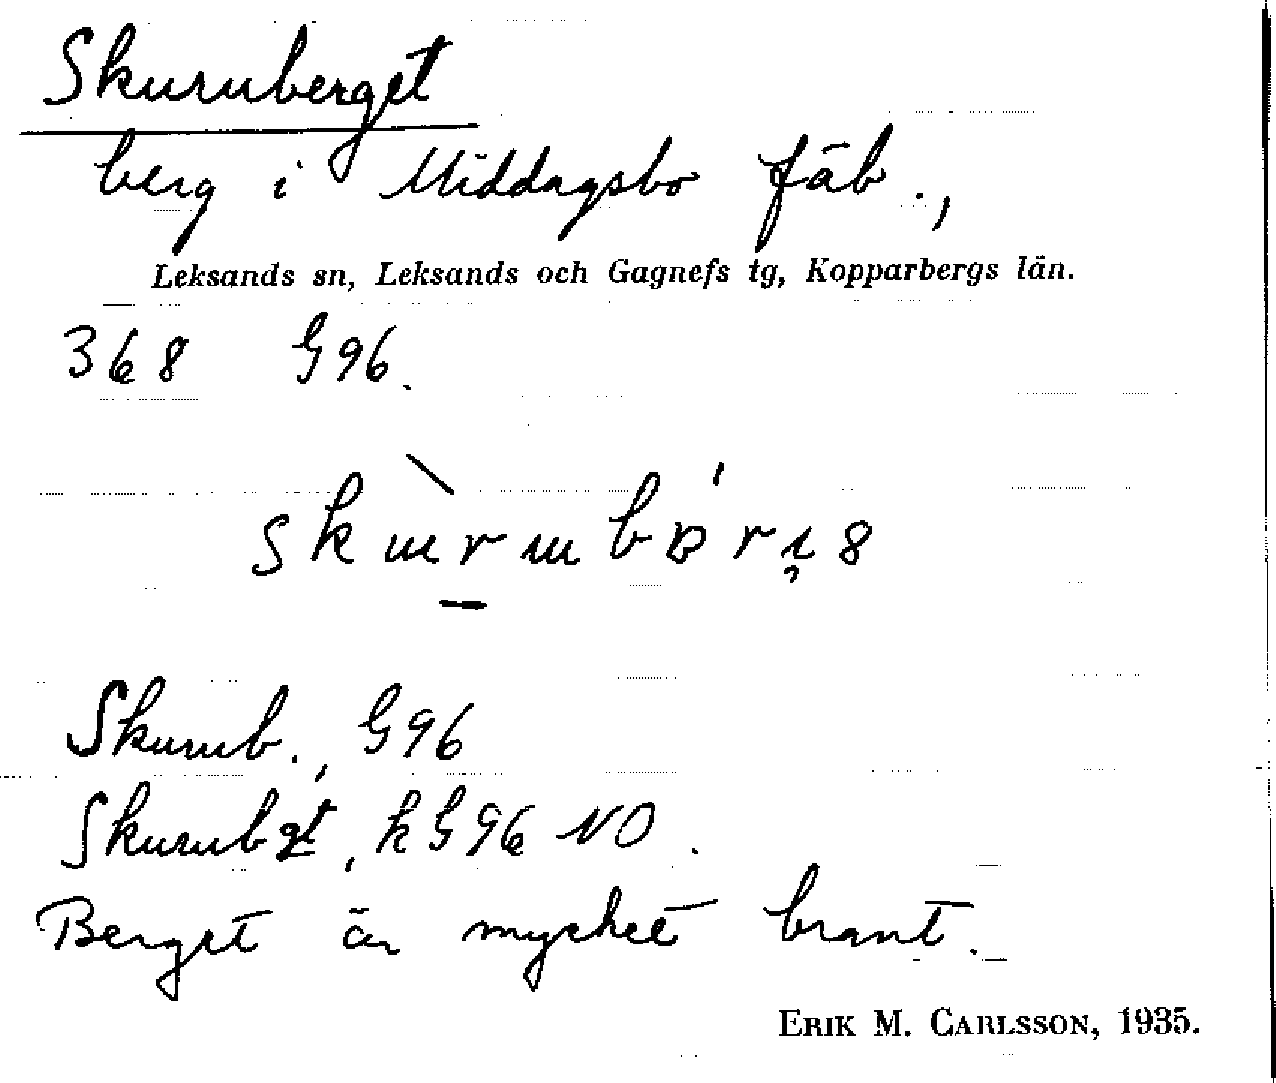 Skuruberget
berg i Middagsbo fäb.,
Leksands sn, Leksands och Gagnefs tg, Kopparbergs län.
368 G96.
Skurub., G96
Skurubgt, k G96 NO.
Berget är mycket brant.
ERIK M. CARLSSON, 1935.